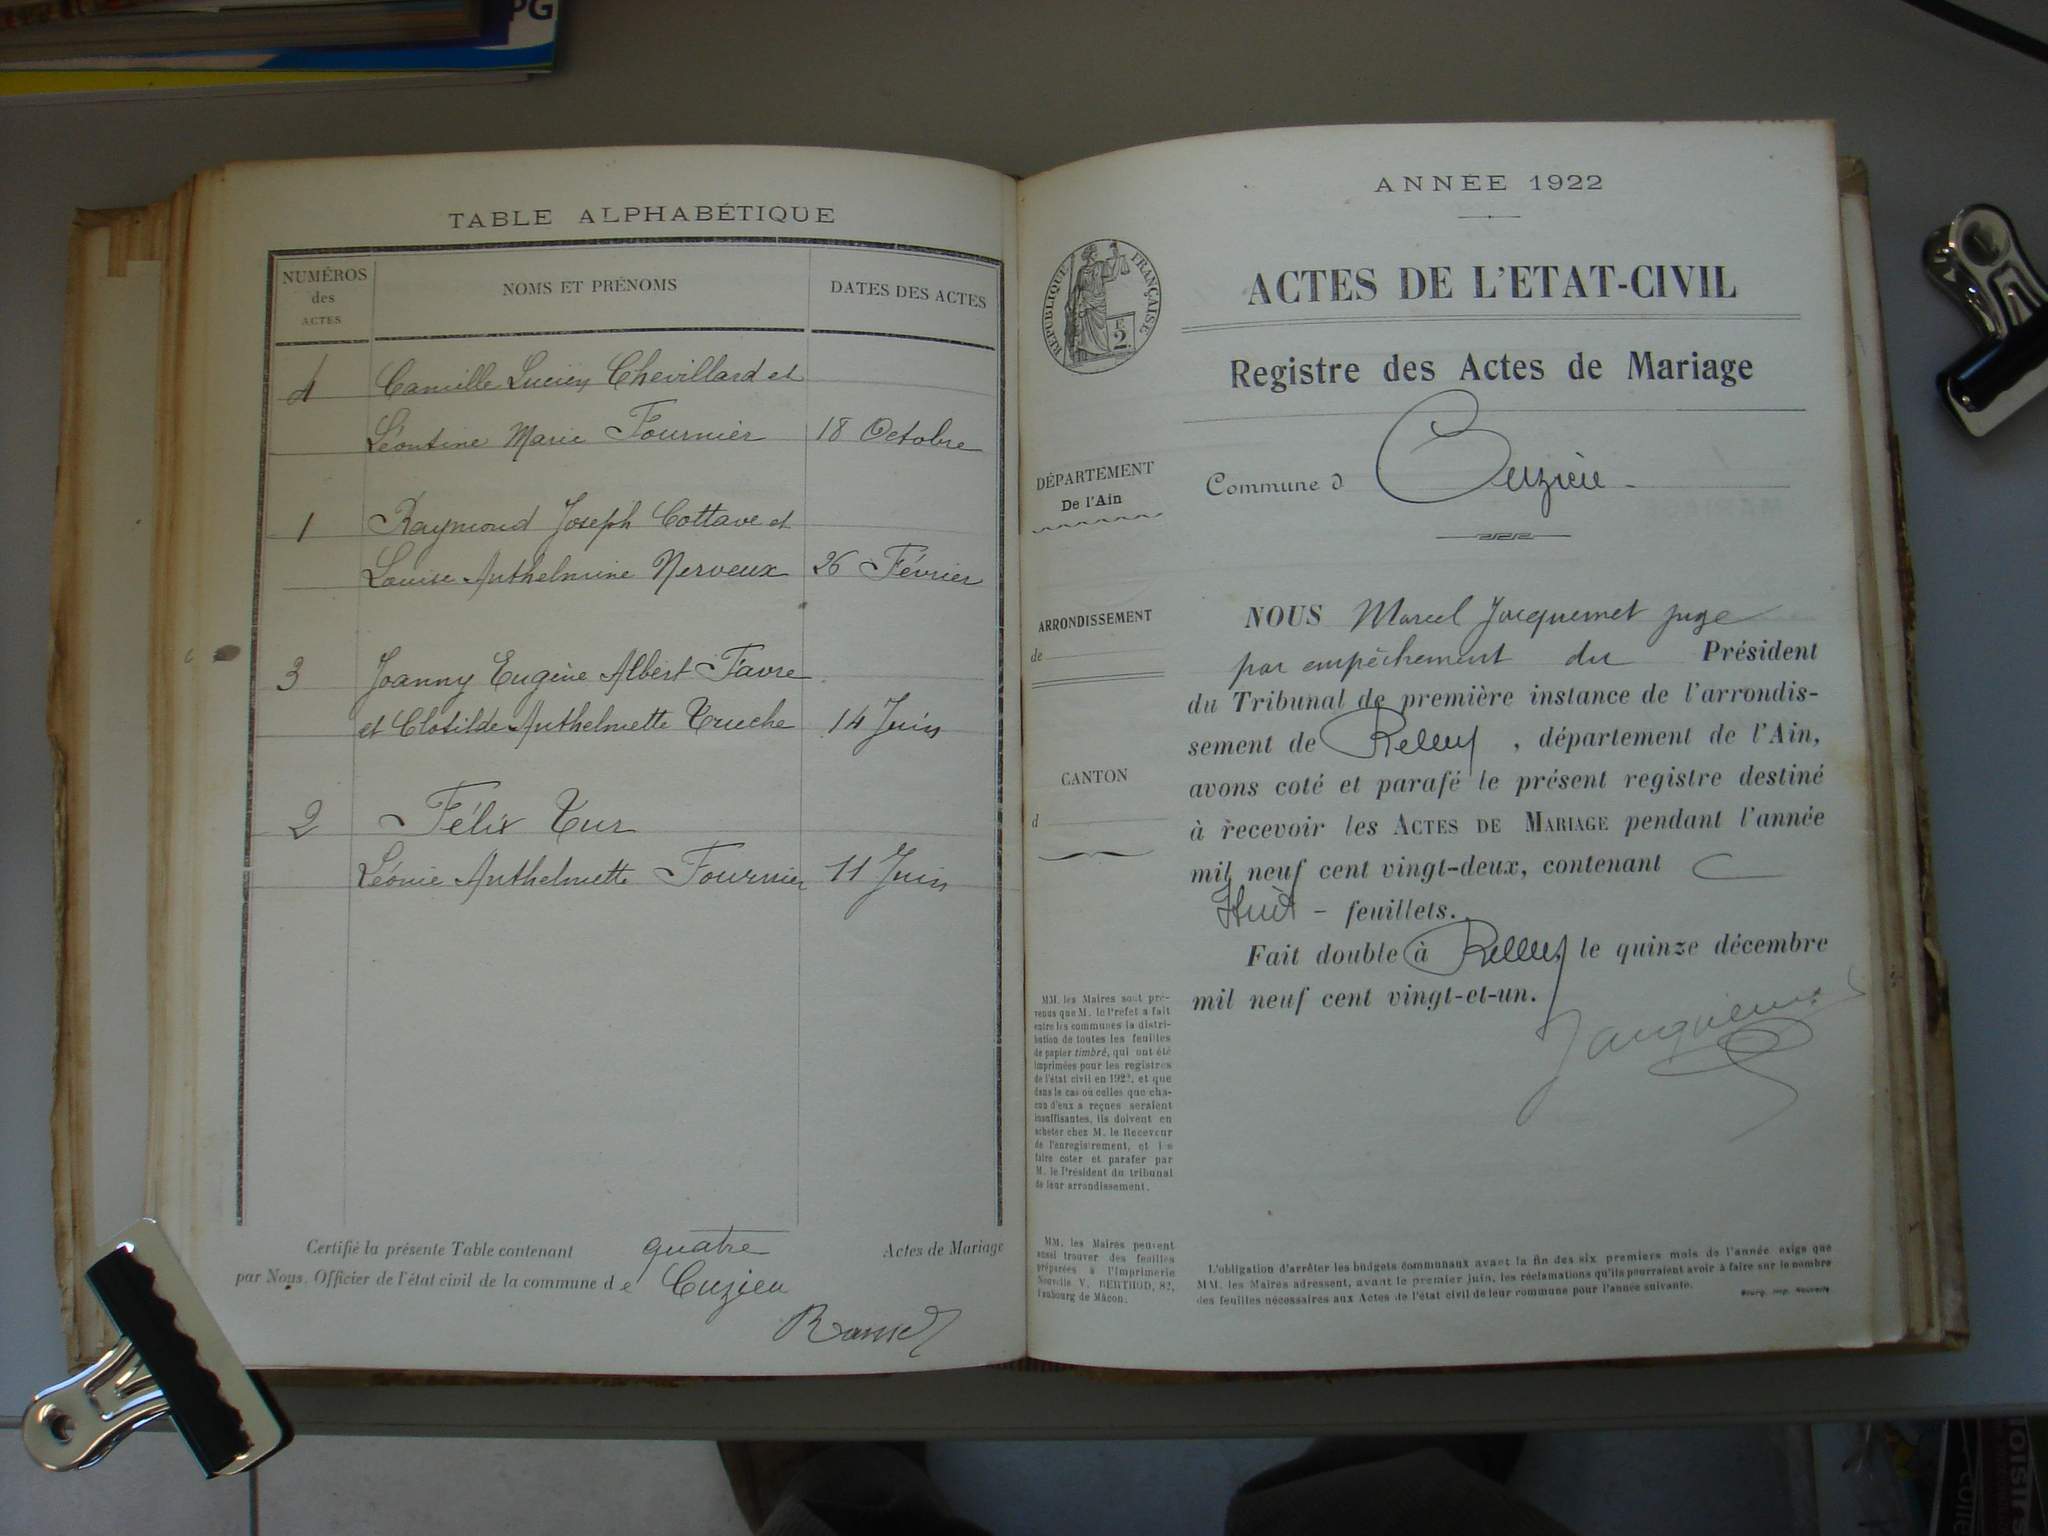 PG
TABLE ALPHABÉTIQUE
NUMÉROS
des
ACTES
NOMS ET PRÉNOMS
DATES DES ACTES
4 Camille Lucien Chevillard et
Léontine Marie Fournier 18 Octobre
1 Raymond Joseph Cottave et
Louise Anthelmine Nerveux 26 Février
3 Joanny Eugène Albert Favre
et Clotilde Anthelmette Truche 14 Juin
2 Félix Tur
Léonie Anthelmette Fournier 11 Juin
Certifié la présente Table contenant quatre Actes de Mariage
par Nous, Officier de l'état civil de la commune de Cuzieu
ANNÉE 1922
RÉPUBLIQUE FRANÇAISE
2
F
ACTES DE L'ETAT-CIVIL
Registre des Actes de Mariage
Commune d Cuzieu
DÉPARTEMENT
De l'Ain
ARRONDISSEMENT
de
CANTON
d
NOUS Marcel Jacquemet juge
par empêchement du Président
du Tribunal de première instance de l'arrondis-
sement de Belley, département de l'Ain,
avons coté et parafé le présent registre destiné
à recevoir les ACTES DE MARIAGE pendant l'année
mil neuf cent vingt-deux, contenant
Huit - feuillets.
Fait double à Belley, le quinze décembre
mil neuf cent vingt-et-un.
Jacquemet
MM. les Maires sont pré-
venus que M. le Préfet a fait
entre les communes la distri-
bution de toutes les feuilles
de papier timbré, qui ont été
imprimées pour les registres
de l'état civil en 1922, et que
dans le cas où celles que cha-
cun d'eux a reçues seraient
insuffisantes, ils doivent en
acheter chez M. le Receveur
de l'enregistrement, et les
faire coter et parafer par
M. le Président du tribunal
de leur arrondissement.
MM. les Maires peuvent
aussi trouver des feuilles
préparées à l'Imprimerie
Nouvelle V. BERTHOD, 82,
faubourg de Mâcon.
L'obligation d'arrêter les budgets communaux avant la fin des six premiers mois de l'année exige que
MM. les Maires adressent, avant le premier juin, les réclamations qu'ils pourraient avoir à faire sur le nombre
des feuilles nécessaires aux Actes de l'état civil de leur commune pour l'année suivante.
Bourg, imp. Nouvelle